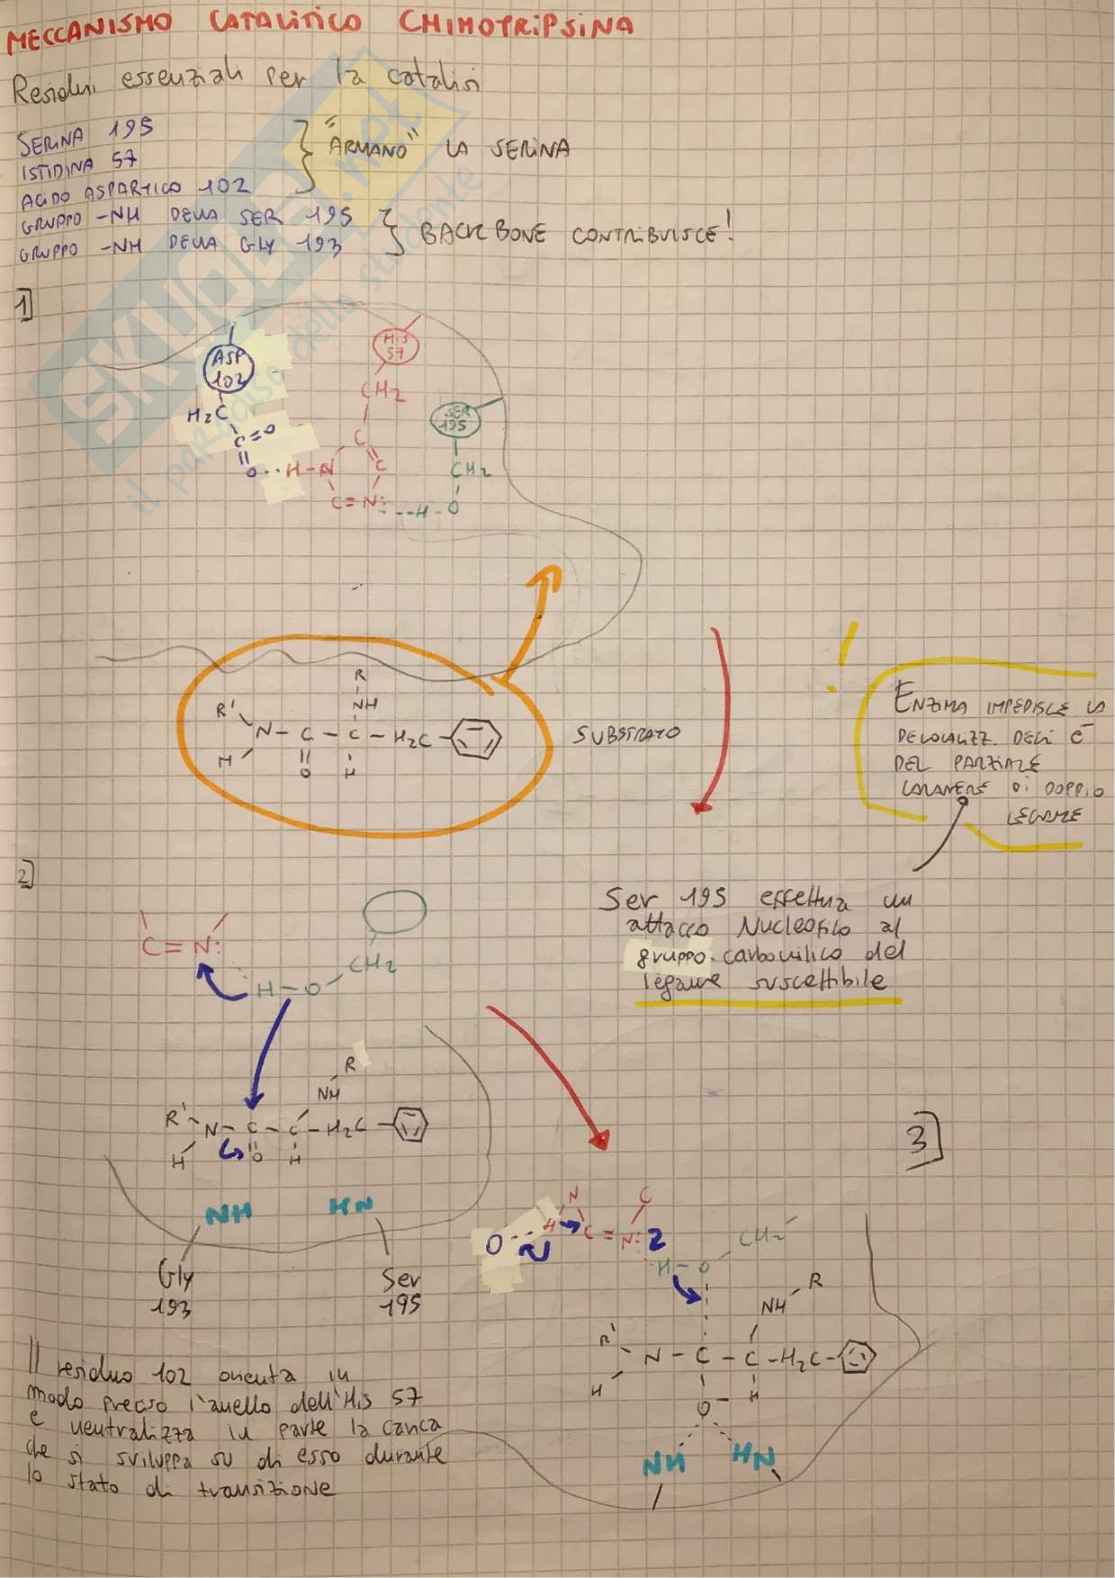 MECCANISMO CATALITICO CHIMOTRIPSINA
Residui essenziali per la catalisi
SERINA 195
ISTIDINA 57
ACIDO ASPARTICO 102
"ARMANO" LA SERINA
GRUPPO -NH DELLA SER 195
GRUPPO -NH DELLA GLY 193
BACKBONE CONTRIBUISCE!
1]
ASP 102
HIS 57
SER 195
CH2
H2C
CH2
C=O
O
H-N
C
C
C=N:
--H-O
R
NH
R'
N-C-C-H2C-
H
O
H
SUBSTRATO
ENZIMA IMPEDISCE LA
DELOCALIZZ. DEGLI e-
DEL PARZIALE
CARATTERE DI DOPPIO
LEGAME
2]
Ser 195 effettua un
attacco Nucleofilo al
gruppo carbonilico del
legame suscettibile
C=N:
CH2
H-O
R
NH
R'
N-C-C-H2C-
H
O
H
NH
HN
Gly
193
Ser
195
3]
N
C
O
H
C=N:
2
CH2
H-O
R
NH
R'
N-C-C-H2C-
H
H
O-
NH
HN
Il residuo 102 orienta in
modo preciso l'anello dell'His 57
e neutralizza in parte la carica
che si sviluppa su di esso durante
lo stato di transizione
SKUOLA.net
il paradiso dello studente